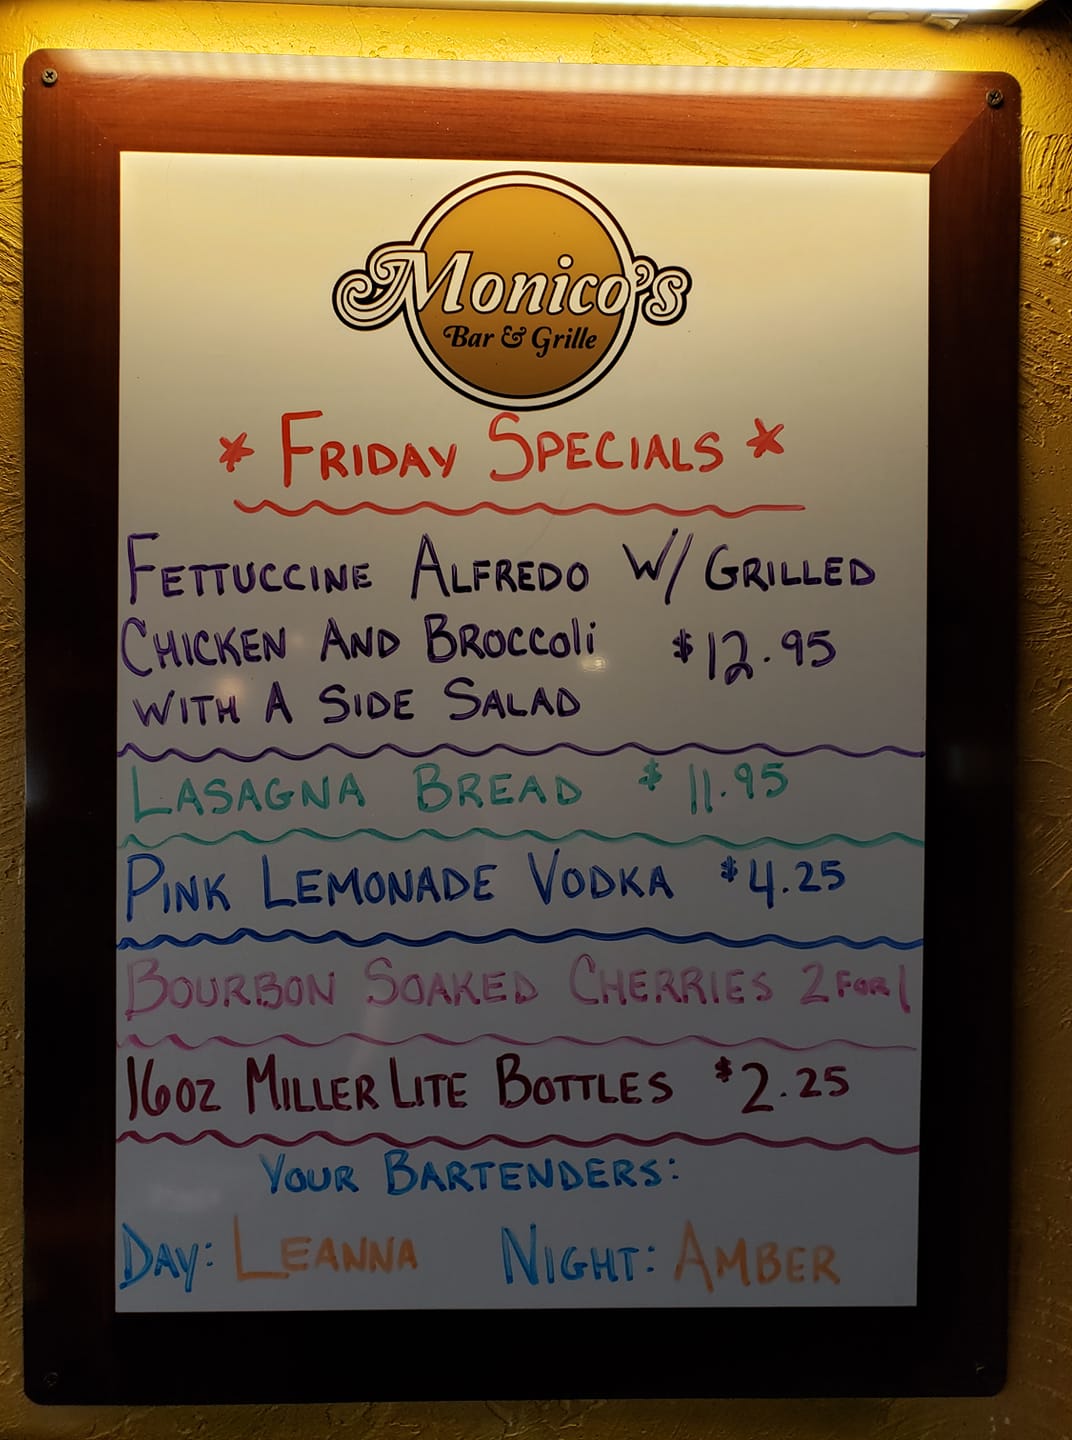 Monico's
Bar & Grille
* FRIDAY SPECIALS *
FETTUCCINE ALFREDO W/ GRILLED
CHICKEN AND BROCCOLi $12.95
WITH A SIDE SALAD
LASAGNA BREAD $11.95
PINK LEMONADE VODKA $4.25
BOURBON SOAKED CHERRIES 2 FOR 1
16OZ MILLER LITE BOTTLES $2.25
YOUR BARTENDERS:
DAY: LEANNA NIGHT: AMBER